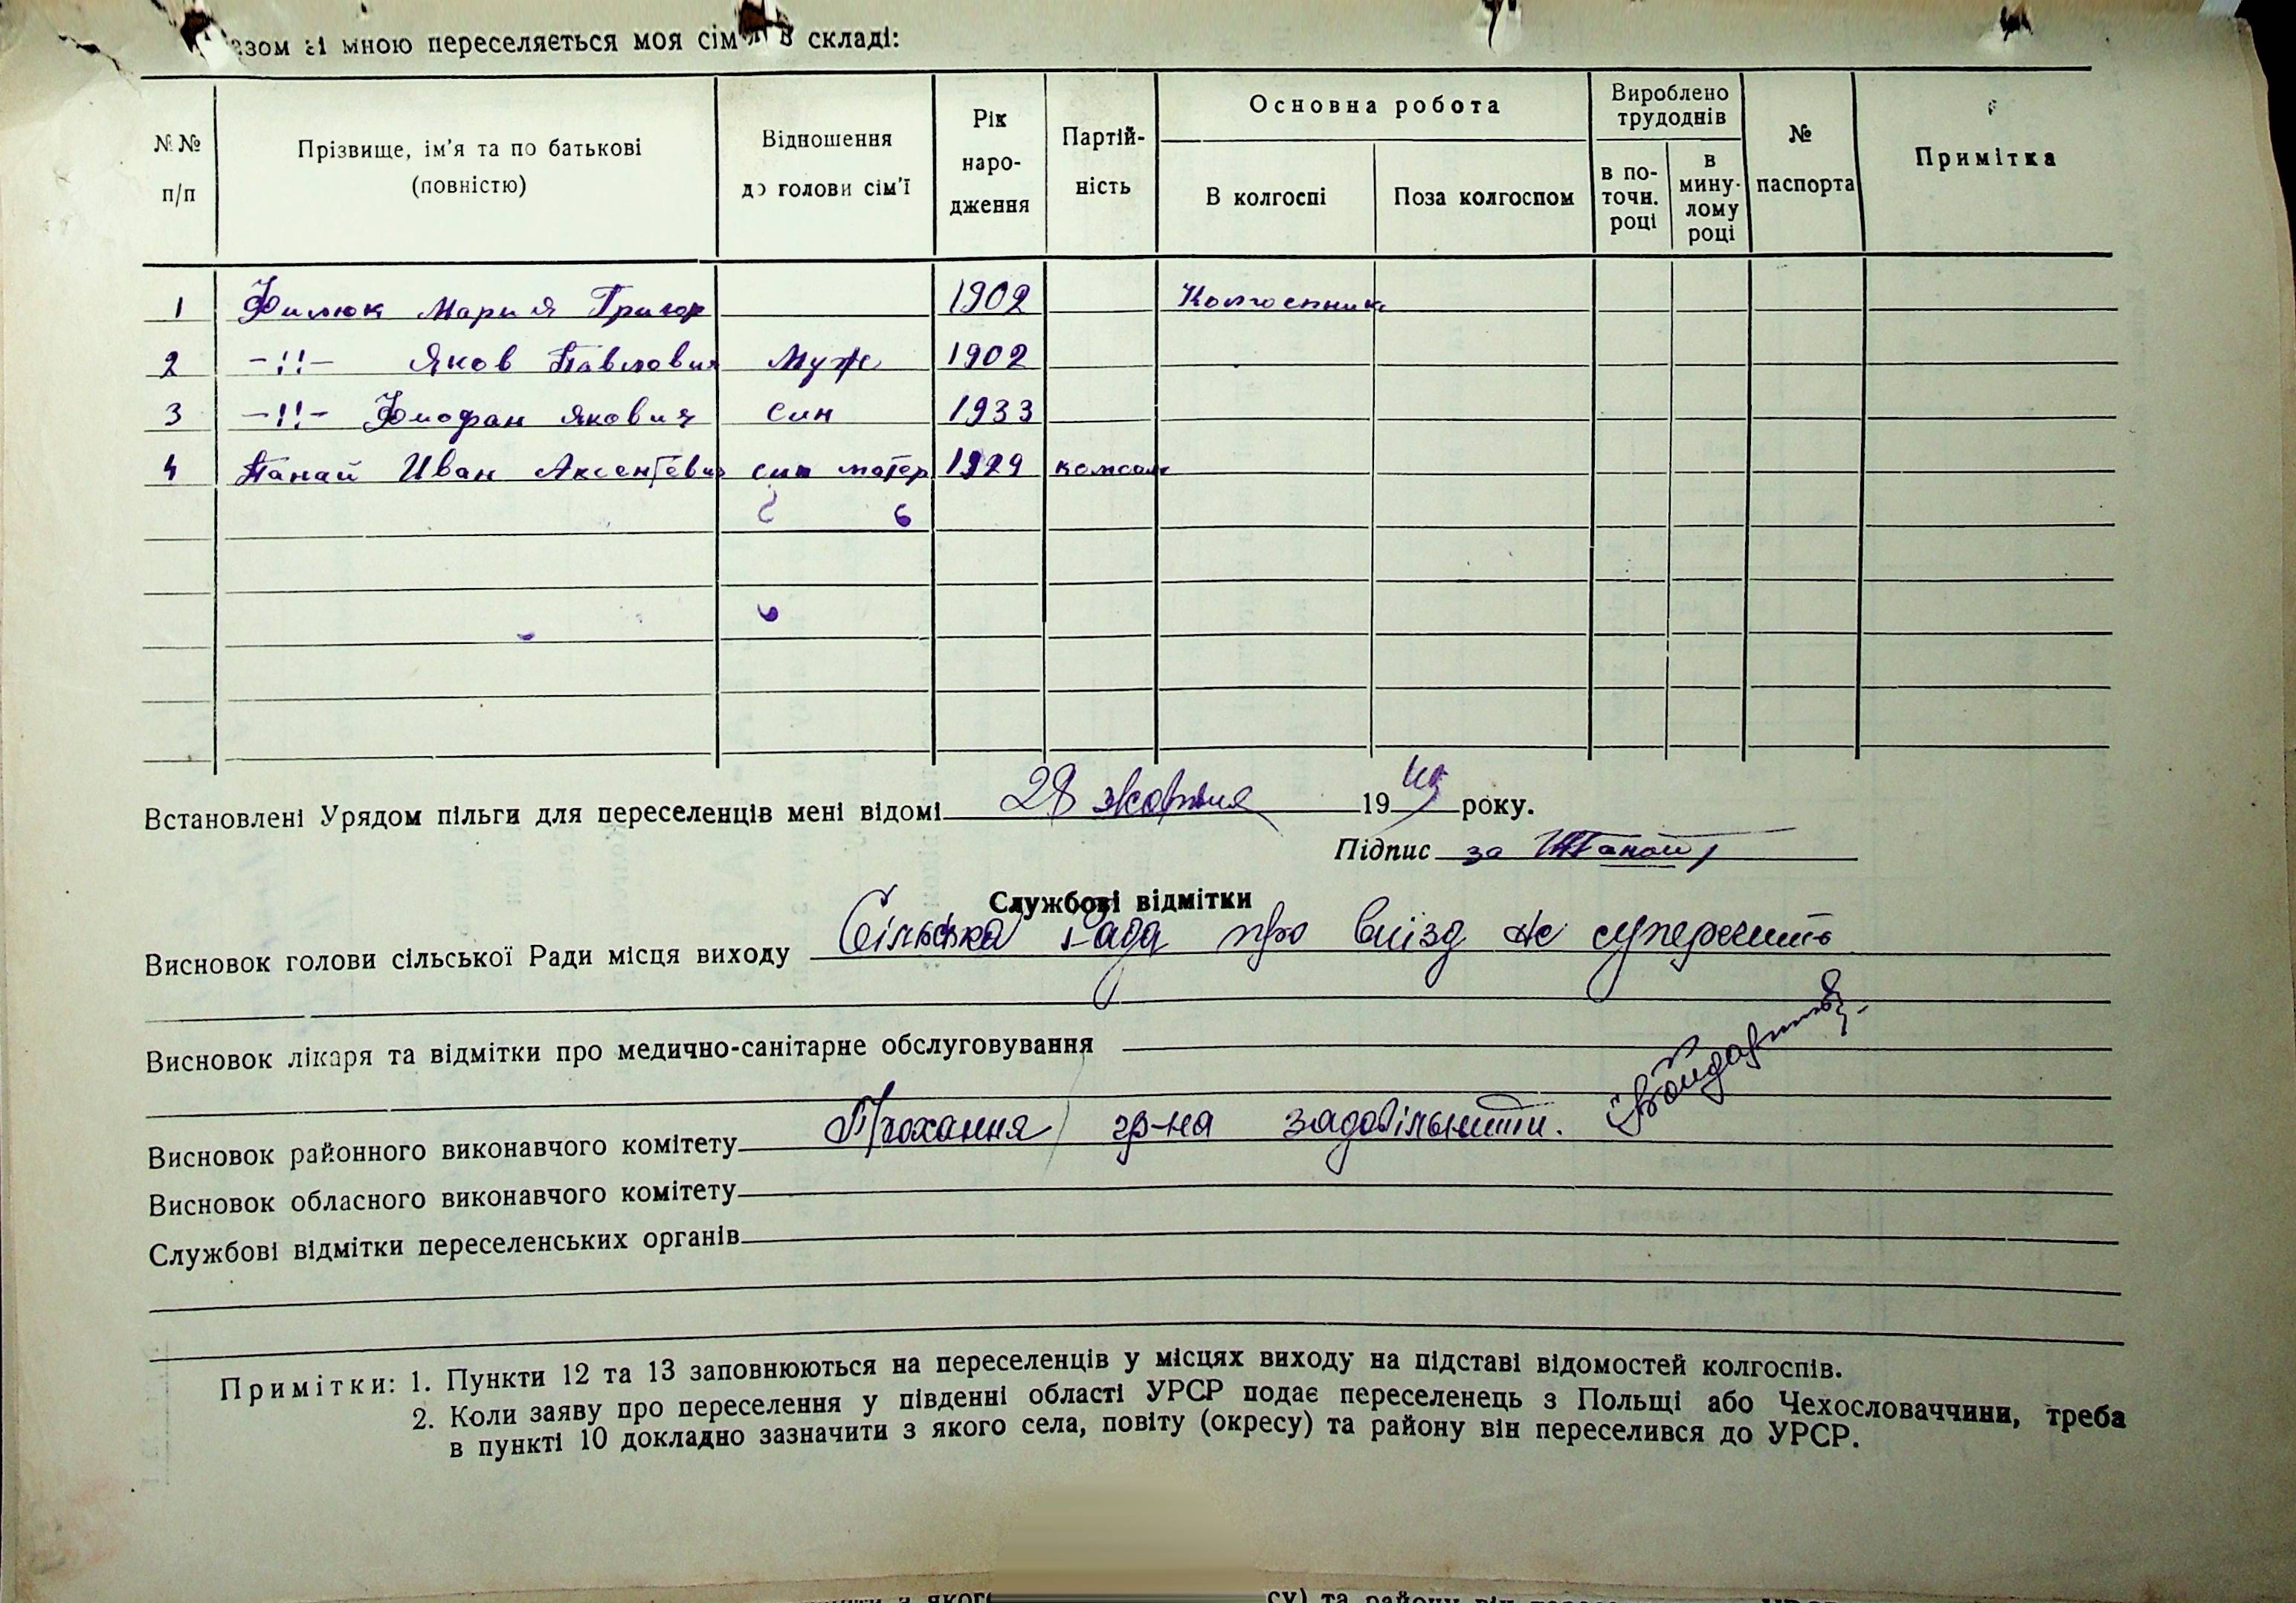 зом зі мною переселяється моя сім'я в складі:
№№ п/п
Прізвище, ім'я та по батькові (повністю)
Відношення до голови сім'ї
Рік народження
Партій-ність
Основна робота
В колгоспі
Поза колгоспом
Вироблено трудоднів
в по-точн. році
в мину-лому році
№ паспорта
Примітка
1 Филюк Мария Григор 1902 Колгоспник
2 -!!- Яков Павлович Муж 1902
3 -!!- Якович син 1933
4 Панай Иван Аксентевич син матер 1929 комсом
Встановлені Урядом пільги для переселенців мені відомі 28 жовтня 1949 року.
Підпис за Панай
Службові відмітки
Висновок голови сільської Ради місця виходу Сільська Рада про виїзд не суперечить
Висновок лікаря та відмітки про медично-санітарне обслуговування
Висновок районного виконавчого комітету Прохання гр-на задовільнити.
Висновок обласного виконавчого комітету
Службові відмітки переселенських органів
Примітки: 1. Пункти 12 та 13 заповнюються на переселенців у місцях виходу на підставі відомостей колгоспів.
2. Коли заяву про переселення у південні області УРСР подає переселенець з Польщі або Чехословаччини, треба
в пункті 10 докладно зазначити з якого села, повіту (окресу) та району він переселився до УРСР.